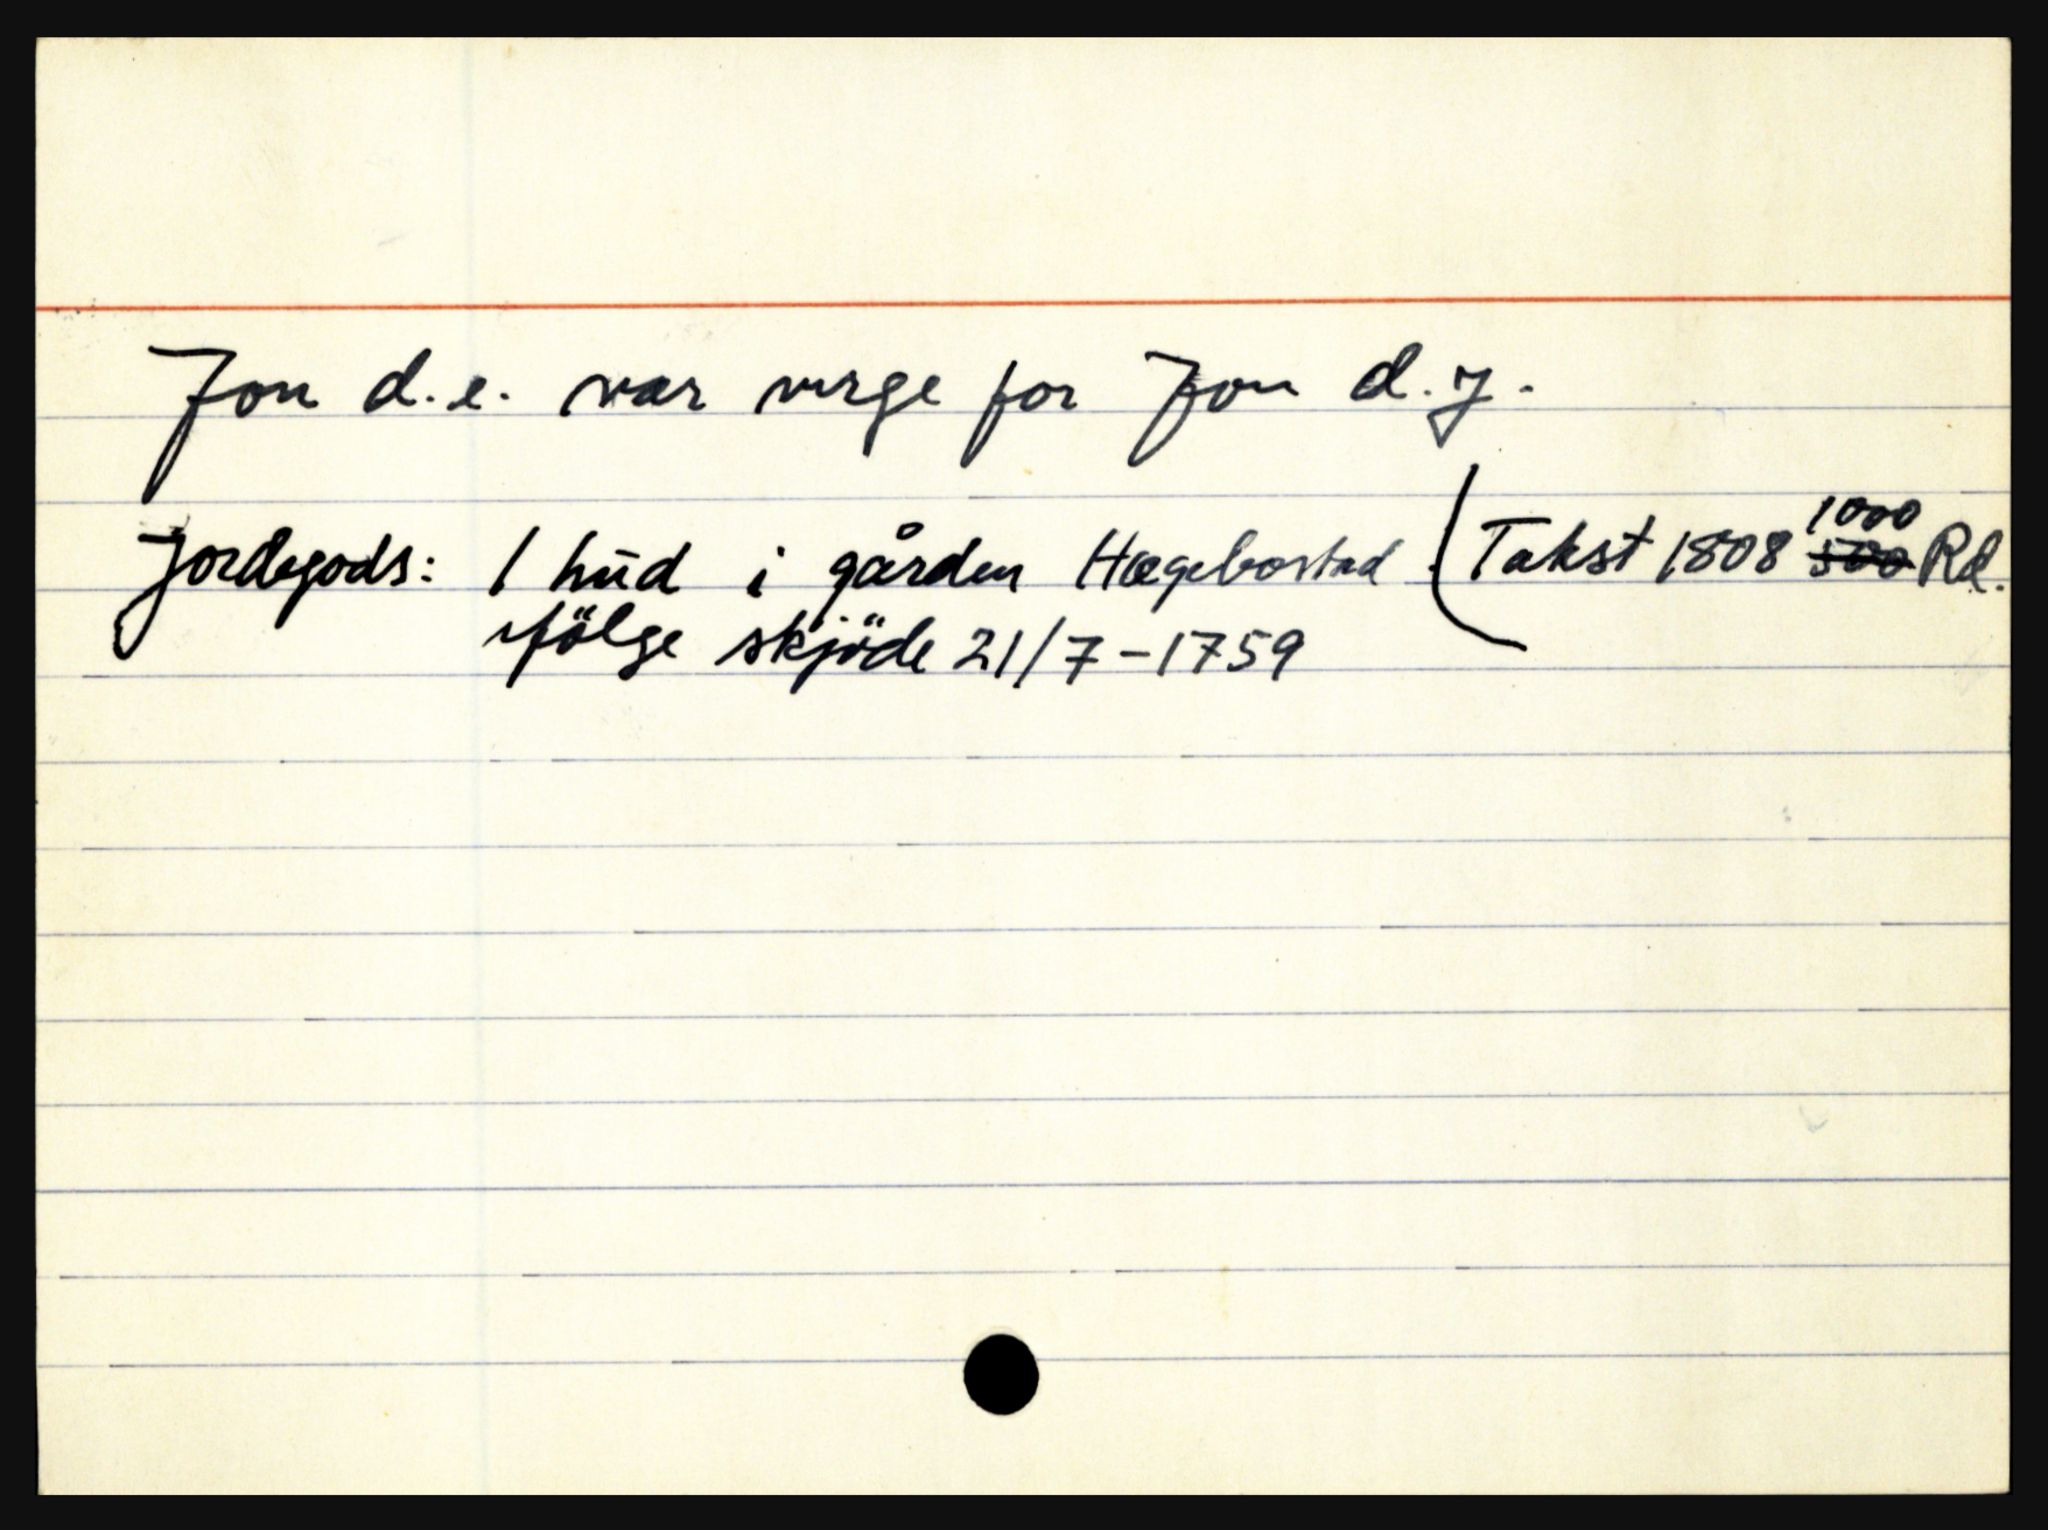 Jon d.e. var verge for Jon d.y.
Jordegods: 1 hud i gården Hægebostad (Takst 1808 1000 ~~500~~ Rd.
ifölge skjöde 21/7-1759